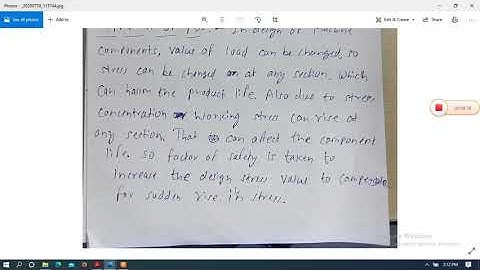 Photos - _20200710_111744.jpg
See all photos
Edit & Create
Share
in design of machine
components, value of load can be changed, so
stress can be changed at any section. which
can harm the product life. Also due to stress
concentration working stress can rise at
any section. That can affect the component
life. so factor of safety is taken to
increase the design stress value to compensate
for sudden rise in stress.
Windows
3:12 PM